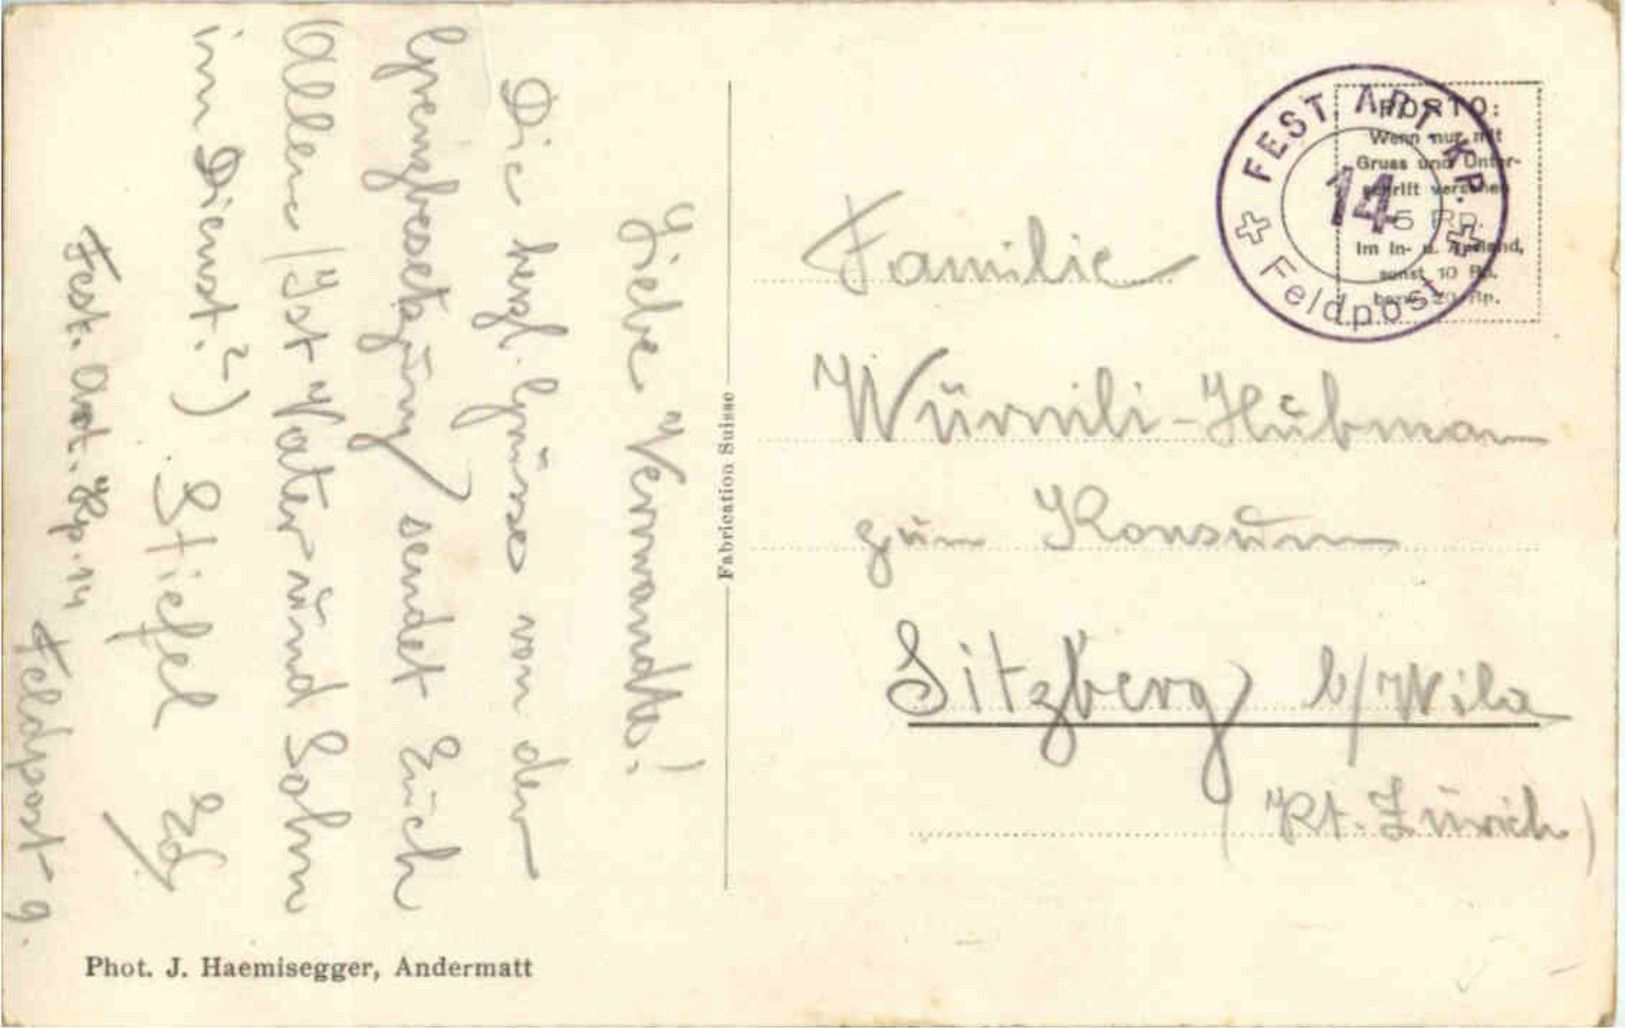 Liebe Verwandte!
Die herzl. Grüsse von der
Grenzbesetzung sendet Euch
Allen (Ist Vater und Sohn
im Dienst.?) Stiefel Ed
Fest. Art. Kp. 14
Feldpost 9.
Fabrication Suisse
Phot. J. Haemisegger, Andermatt
FEST. ART. KP.
14
Feldpost
PORTO:
Wenn nur mit
Gruss und Unter-
schrift versehen
5 RP.
Im In- u. Ausland,
sonst 10 Rp.
bezw. 20 Rp.
Familie
Würmli-Hubman
zum Konsum
Sitzberg b/Wila
(Kt. Zürich)